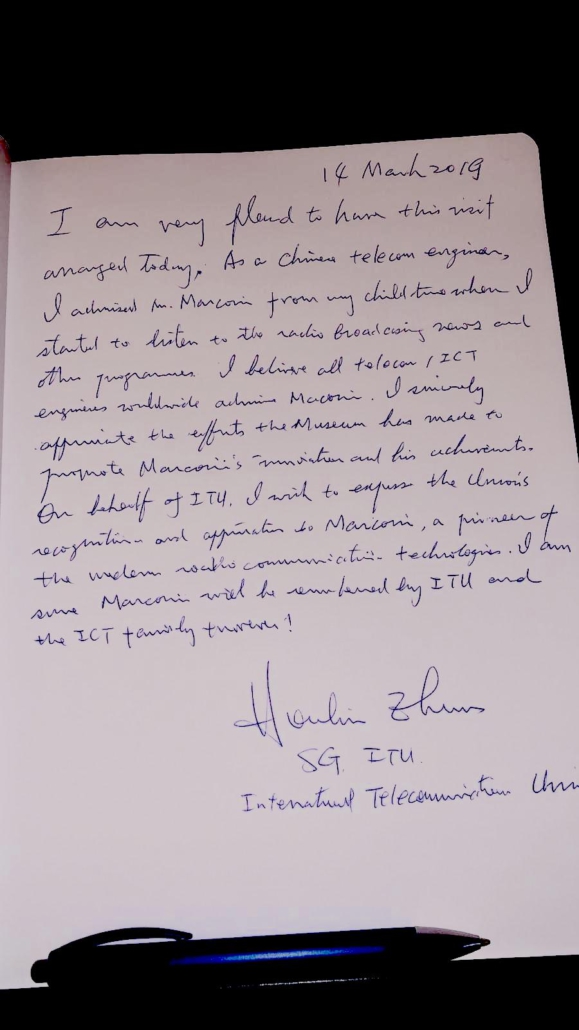 14 March 2019
I am very pleased to have this visit
arranged today. As a Chinese telecom engineer,
I admired Mr. Marconi from my childtime when I
started to listen to the radio broadcasing news and
other programmes. I believe all telecom / ICT
engineers worldwide admire Maconi. I sincerely
appreciate the efforts the Museum has made to
promote Marconi's innovation and his achievements.
On behalf of ITU, I wish to express the Union's
recognition and appreciation to Marconi, a pioneer of
the modern radio communication technologies. I am
sure Marconi will be remembered by ITU and
the ICT family forever!
Houlin Zhao
SG. ITU.
International Telecommunication Union